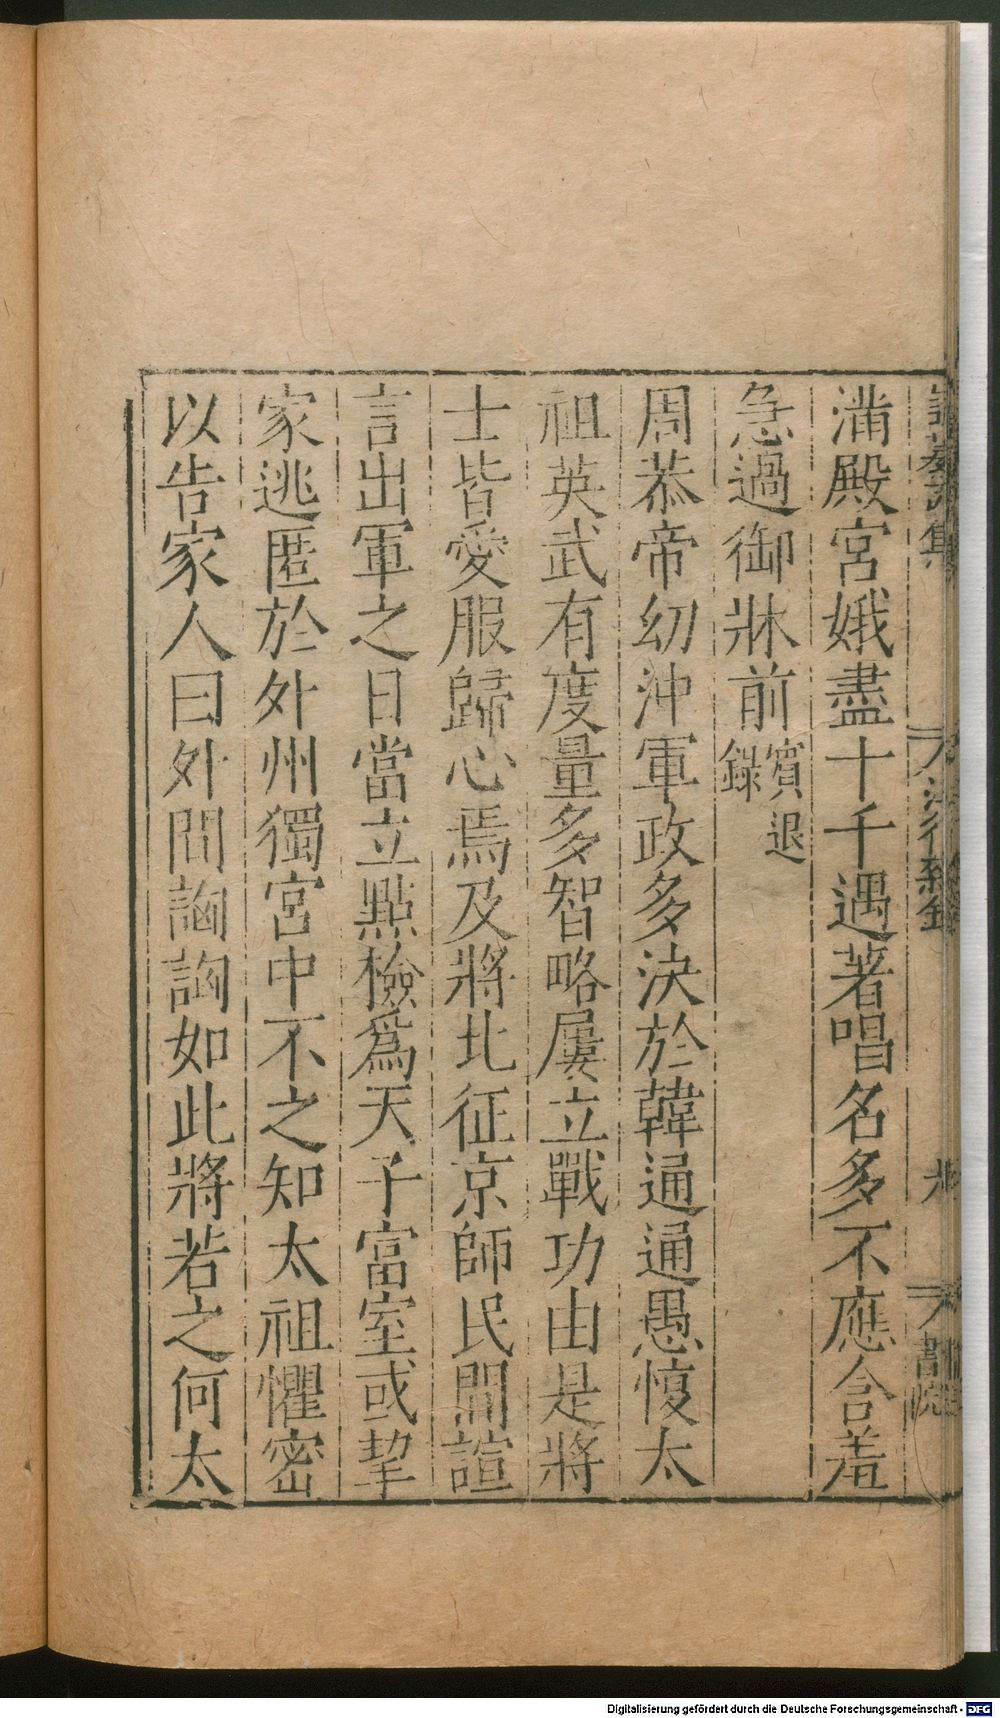 滿殿宮娥盡十千遇著唱名多不應含羞
急過御牀前賓退錄
周恭帝幼沖軍政多決於韓通通愚愎太
祖英武有度量多智略屢立戰功由是將
士皆愛服歸心焉及將北征京師民間諠
言出軍之日當立點檢爲天子富室或挈
家逃匿於外州獨宮中不之知太祖懼密
以告家人曰外間詾詾如此將若之何太
Digitalisierung gefördert durch die Deutsche Forschungsgemeinschaft - DFG